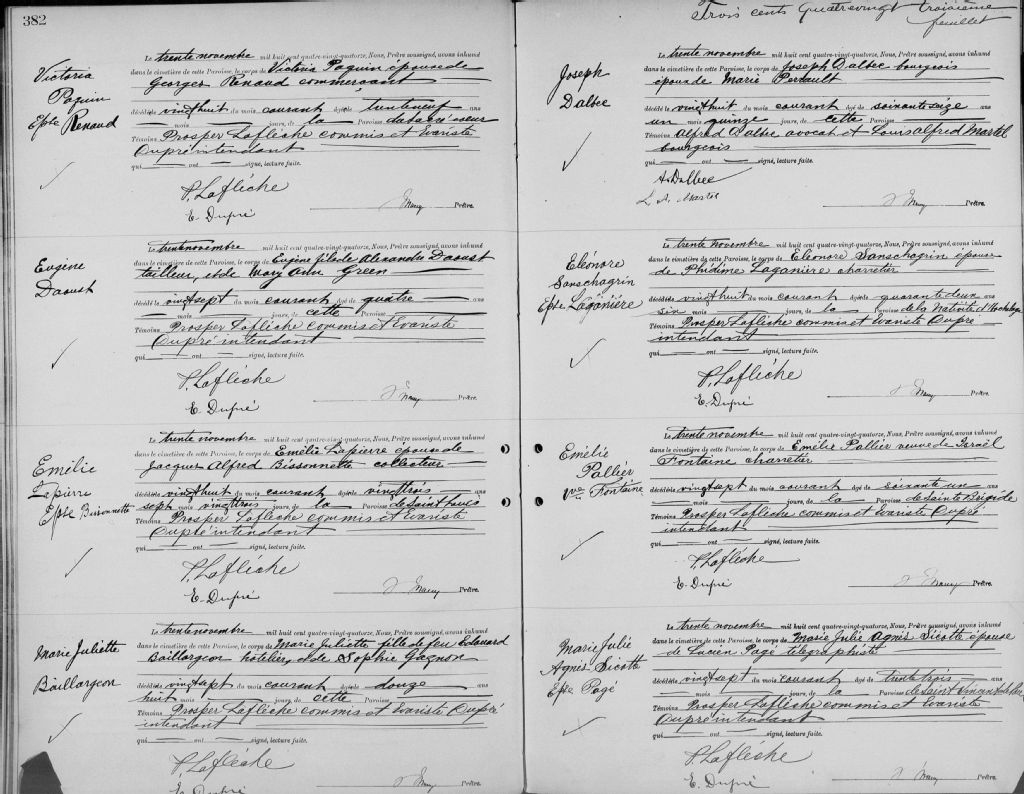 382
Victoria
Paquin
Epse Renaud
Le trente novembre mil huit cent quatre-vingt-quatorze, Nous, Prêtre soussigné, avons inhumé
dans le cimetière de cette Paroisse, le corps de Victoria Paquin épouse de
Georges Renaud commerçant
décédée vingt huit du mois courant âgée de trente neuf ans
mois jours, de la Paroisse
Témoins Prosper Laflèche commis et Evariste
Dupré intendant
qui ont signé, lecture faite.
P. Laflèche
E. Dupré
Prêtre.
Eugène
Daoust
Le trente novembre mil huit cent quatre-vingt-quatorze, Nous, Prêtre soussigné, avons inhumé
dans le cimetière de cette Paroisse, le corps de Eugène fils de Alexandre Daoust
tailleur, et de Mary Ann Green
décédé vingt sept du mois courant âgé de quatre ans
mois jours, de cette Paroisse
Témoins Prosper Laflèche commis et Evariste
Dupré intendant
qui ont signé, lecture faite.
P. Laflèche
E. Dupré
Prêtre.
Emélie
Lapierre
Epse Bissonnette
Le trente novembre mil huit cent quatre-vingt-quatorze, Nous, Prêtre soussigné, avons inhumé
dans le cimetière de cette Paroisse, le corps de Emélie Lapierre épouse de
Jacques Alfred Bissonnette collecteur
décédée vingt huit du mois courant âgée de vingt trois ans
sept mois vingt trois jours, de la Paroisse de Saint Pauls
Témoins Prosper Laflèche commis et Evariste
Dupré intendant
qui ont signé, lecture faite.
P. Laflèche
E. Dupré
Prêtre.
Marie Juliette
Baillargeon
Le trente novembre mil huit cent quatre-vingt-quatorze, Nous, Prêtre soussigné, avons inhumé
dans le cimetière de cette Paroisse, le corps de Marie Juliette fille de feu Edouard
Baillargeon hôtelier, et de Sophie Gagnon
décédée vingt sept du mois courant âgée de douze ans
huit mois jours, de cette Paroisse
Témoins Prosper Laflèche commis et Evariste Dupré
intendant
qui ont signé, lecture faite.
P. Laflèche
E. Dupré
Prêtre.
Trois cents Quatrevingt troisième
feuillet
Joseph
Dalbec
Le trente novembre mil huit cent quatre-vingt-quatorze, Nous, Prêtre soussigné, avons inhumé
dans le cimetière de cette Paroisse, le corps de Joseph Dalbec bourgeois
époux de Marie Perrault
décédé vingt huit du mois courant âgé de soixante seize ans
un mois quinze jours, de cette Paroisse
Témoins Alfred Dalbec avocat et Louis Alfred Martel
bourgeois
qui ont signé, lecture faite.
A. Dalbec
L. A. Martel
Prêtre.
Eléonore
Sanschagrin
Epse Laganière
Le trente novembre mil huit cent quatre-vingt-quatorze, Nous, Prêtre soussigné, avons inhumé
dans le cimetière de cette Paroisse, le corps de Eléonore Sanschagrin épouse
de Phidime Laganière charretier
décédée vingt huit du mois courant âgée de quarante deux ans
six mois jours, de la Paroisse de la Nativité d'Hochelaga
Témoins Prosper Laflèche commis et Evariste Dupré
intendant
qui ont signé, lecture faite.
P. Laflèche
E. Dupré
Prêtre.
Emélie
Pallier
Vve Fontaine
Le trente novembre mil huit cent quatre-vingt-quatorze, Nous, Prêtre soussigné, avons inhumé
dans le cimetière de cette Paroisse, le corps de Emélie Pallier veuve de Israël
Fontaine charretier
décédée vingt sept du mois courant âgée de soixante un ans
mois jours, de la Paroisse de Sainte Brigide
Témoins Prosper Laflèche commis et Evariste Dupré
intendant
qui ont signé, lecture faite.
P. Laflèche
E. Dupré
Prêtre.
Marie Julie
Agnès Sicotte
Epse Pagé
Le trente novembre mil huit cent quatre-vingt-quatorze, Nous, Prêtre soussigné, avons inhumé
dans le cimetière de cette Paroisse, le corps de Marie Julie Agnès Sicotte épouse
de Lucien Pagé télégraphiste
décédée vingt sept du mois courant âgée de trente trois ans
mois jours, de la Paroisse de Saint Vincent de Paul
Témoins Prosper Laflèche commis et Evariste
Dupré intendant
qui ont signé, lecture faite.
P. Laflèche
E. Dupré
Prêtre.